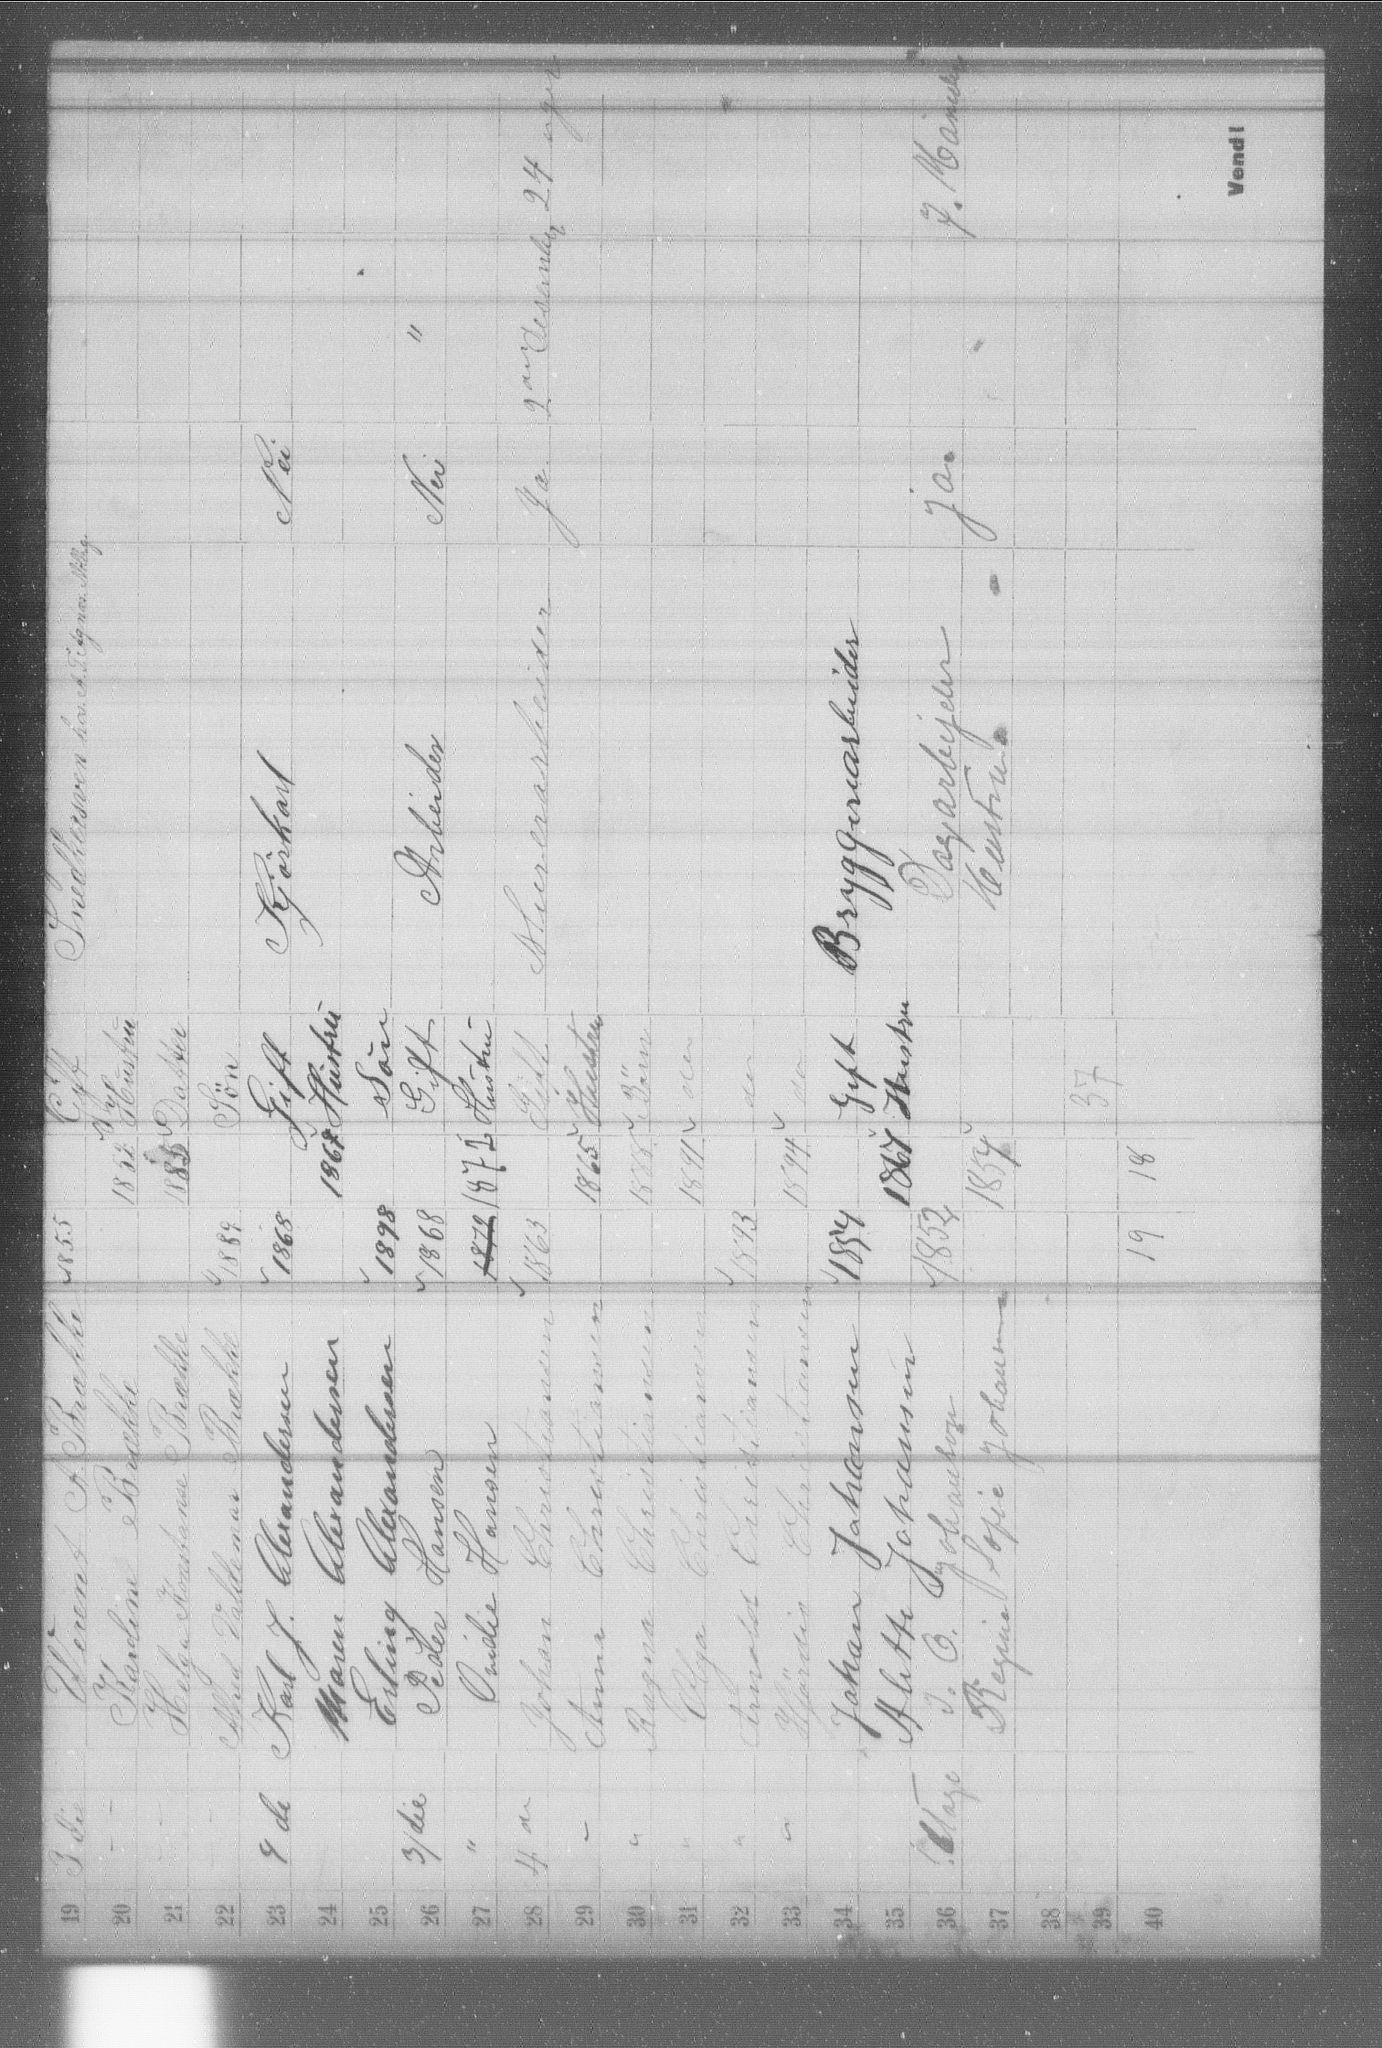 19 3die Virent A Brække 1855 Gift Snedkersven hos A.
20 — Kardine Brække 1852 Hustru
21 — Helga Konstanse Brække Datter
22 — Valdemar Brække 1889 Søn
23 4de Karl J. Alexandersen 1868 Gift Kjørkarl Nei
24 Maren Alexandersen 1867 Hustru
25 Erling Alexandersen 1898 Søn
26 3/die Peder Hansen 1868 Gift Arbeider Nei "
27 " Ovidie Hansen 1872 1871 Hustru
28 4 de Johan Christiansen 1863 Gift Murerarbeider Ja. 2den desember 24 uger
29 " Anna Christiansen 1865 Hustru
30 " Ragna Christiansen 1888 Barn
31 " Olga Christiansen 1891 do
32 " Arnold Christiansen 1893 do
33 " Hjørdis Christiansen 1894 do
34 Johan Johansen 1854 Gift Bryggeriarbeider
35 Alette Johansen 1867 Hustru
36 Etage J. O. Johansen 1852 Dagarbejder ja. 7. Maaneder
37 Regine Sofie Johansen 1854 Hustru
38
39 37
40 19 18
Vend!